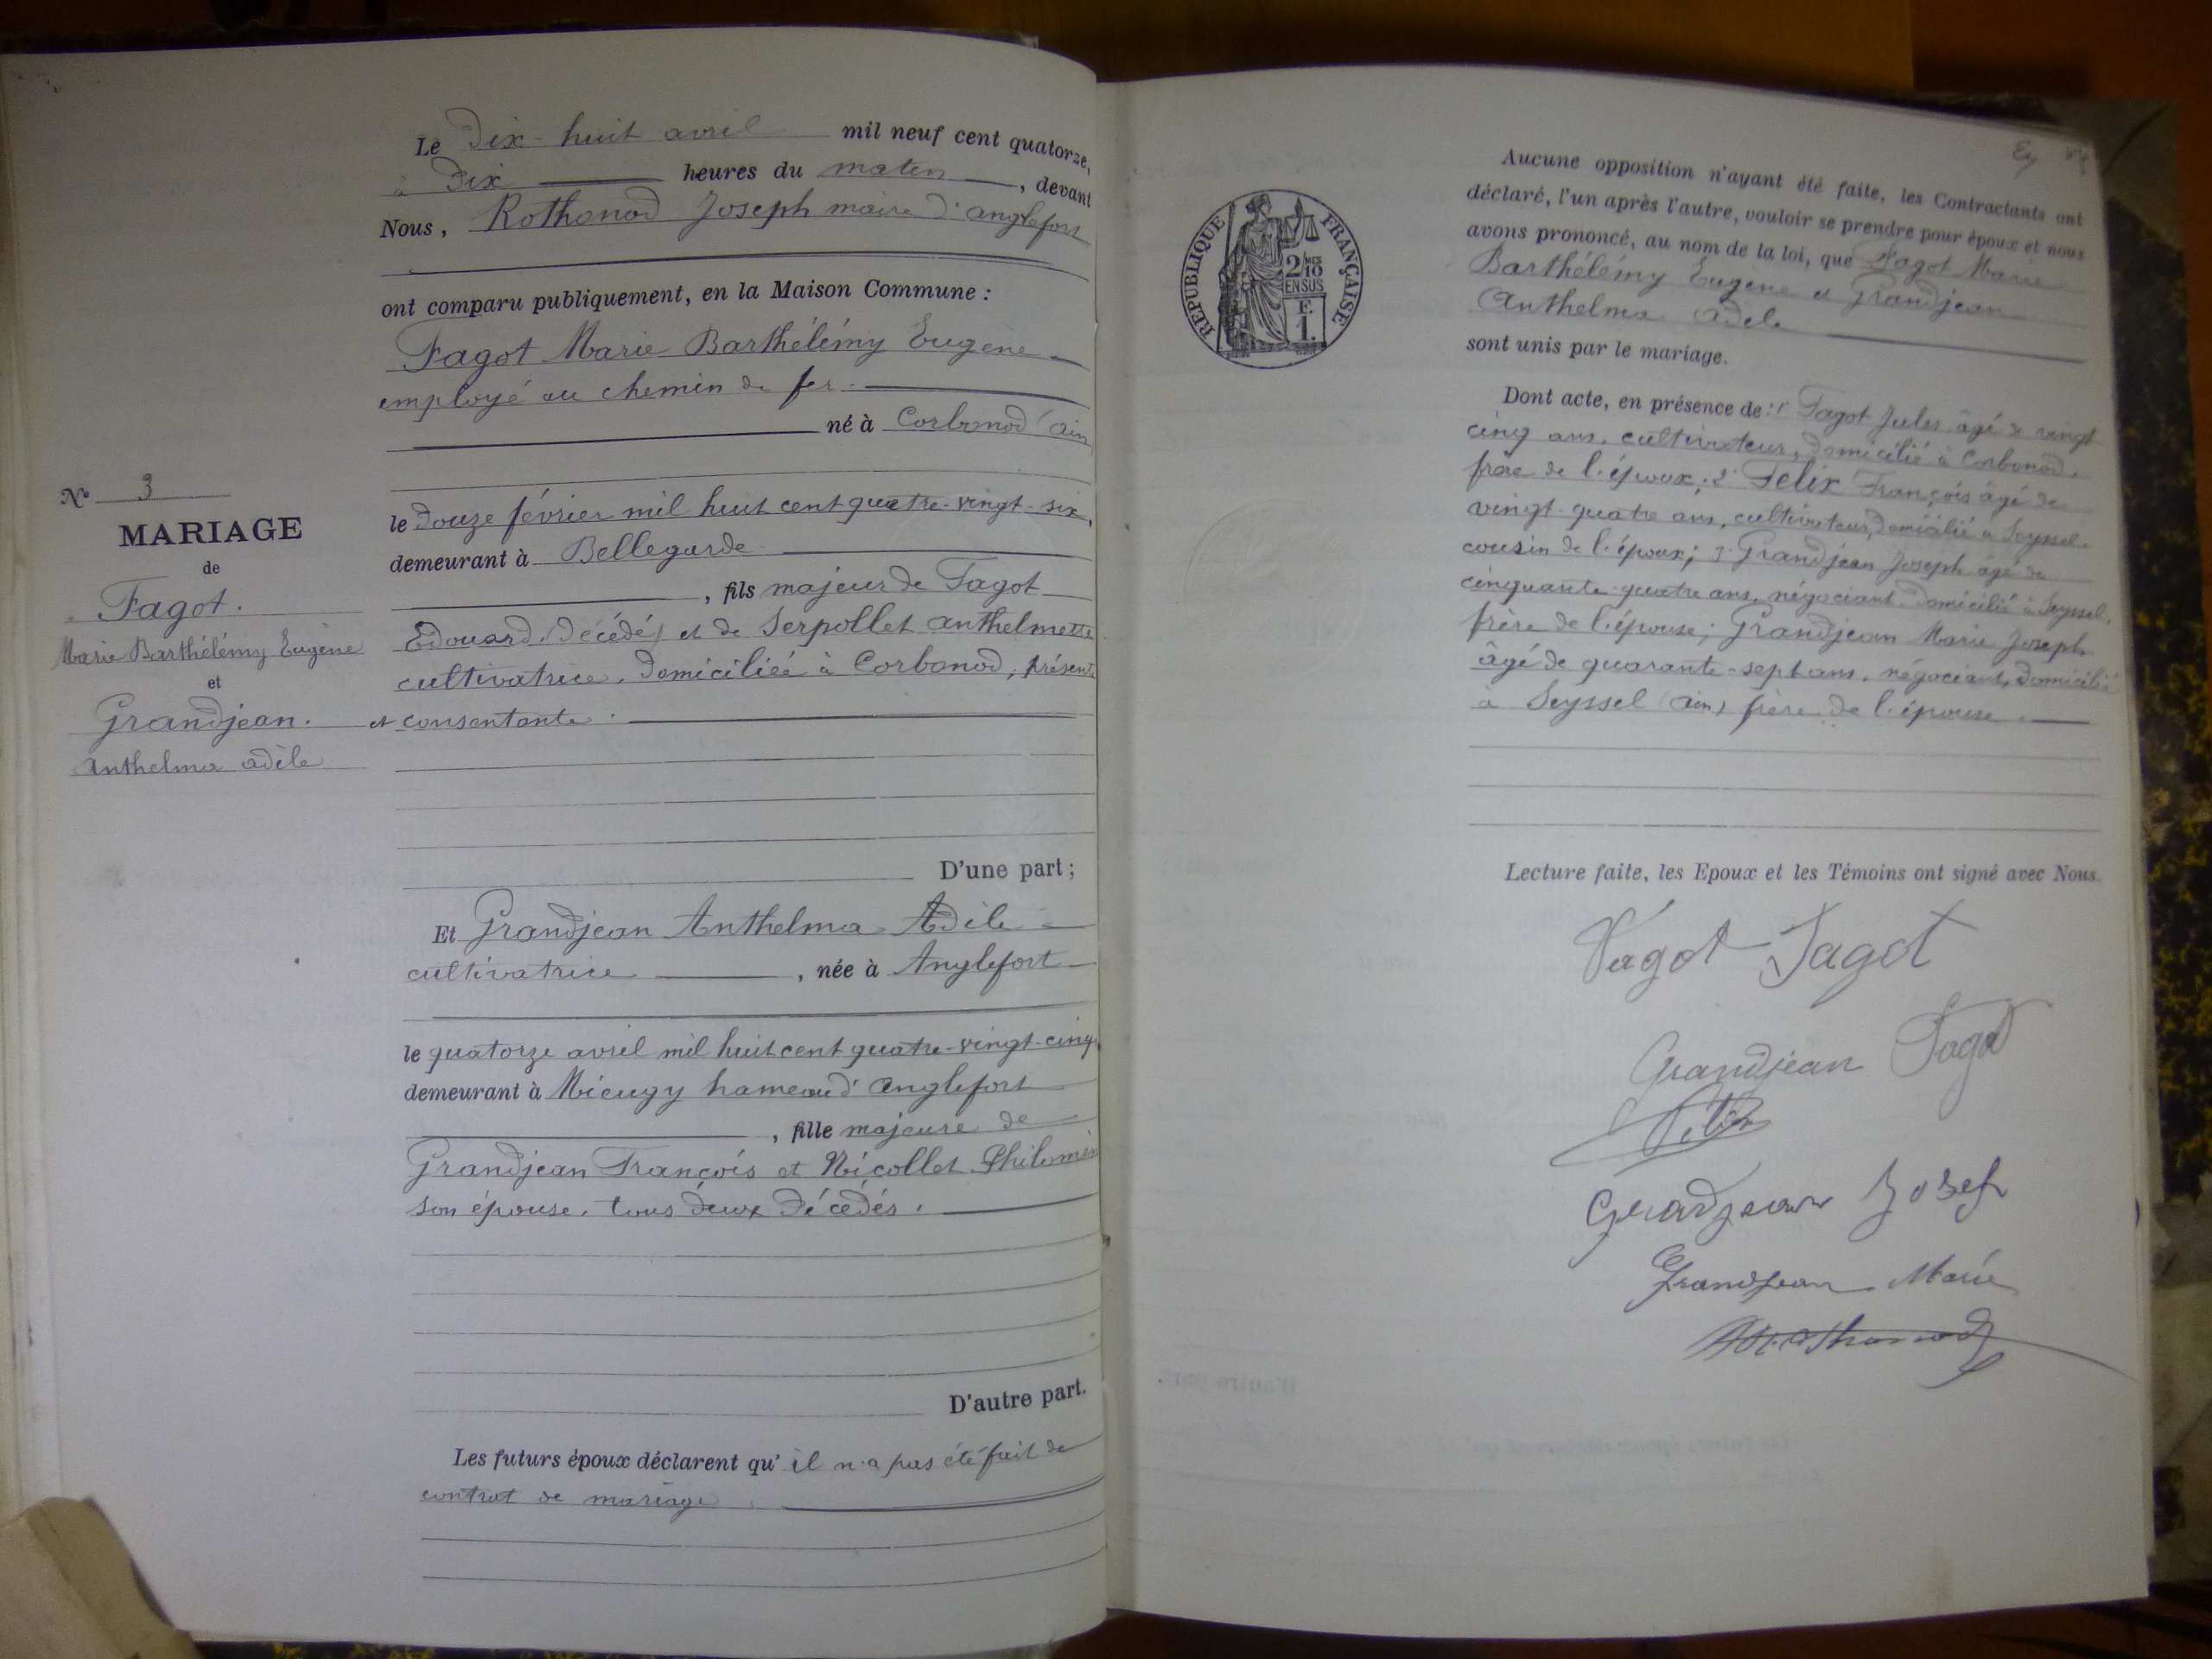 Le Dix-huit avril mil neuf cent quatorze,
à Dix heures du matin, devant
Nous, Rothonod Joseph maire d'anglefort
ont comparu publiquement, en la Maison Commune :
Fagot Marie Barthélémy Eugène
employé au chemin de fer.
né à Corbonod (ain
N° 3
MARIAGE
de
Fagot.
Marie Barthélémy Eugène
et
Grandjean.
Anthelma adèle
le Douze février mil huit cent quatre-vingt-six,
demeurant à Bellegarde
, fils majeur de Fagot
Edouard (Décédé) et de Serpollet anthelmette
cultivatrice, Domiciliée à Corbonod, présente
et consentante.
D'une part ;
Et Grandjean Anthelma Adèle
cultivatrice, née à Anglefort
le quatorze avril mil huit cent quatre-vingt-cinq,
demeurant à Mieugy hameau d'anglefort
, fille majeure de
Grandjean François et Nicollet Philomèn
son épouse, tous deux Décédés.
D'autre part.
Les futurs époux déclarent qu'il n'a pas été fait de
contrat de mariage.
RÉPUBLIQUE FRANÇAISE
2/10
EN SUS
F.
1.
Aucune opposition n'ayant été faite, les Contractants ont
déclaré, l'un après l'autre, vouloir se prendre pour époux et nous
avons prononcé, au nom de la loi, que Fagot Marie
Barthélémy Eugène et Grandjean
Anthelma adèle
sont unis par le mariage.
Dont acte, en présence de : 1° Fagot Jules âgé de vingt
cinq ans, cultivateur, Domicilié à Corbonod,
frère de l'époux; 2° Felix François âgé de
vingt-quatre ans, cultivateur, Domicilié à Seyssel.
cousin de l'époux; 3° Grandjean Joseph âgé de
cinquante-quatre ans, négociant, Domicilié à Seyssel,
frère de l'épouse; Grandjean Marie Joseph
âgé de quarante-sept ans, négociant, Domicilié
à Seyssel (ain) frère de l'épouse.
Lecture faite, les Epoux et les Témoins ont signé avec Nous.
Fagot Fagot
Grandjean Fagot
Grandjean Josef
Grandjean Marie
Rothonod